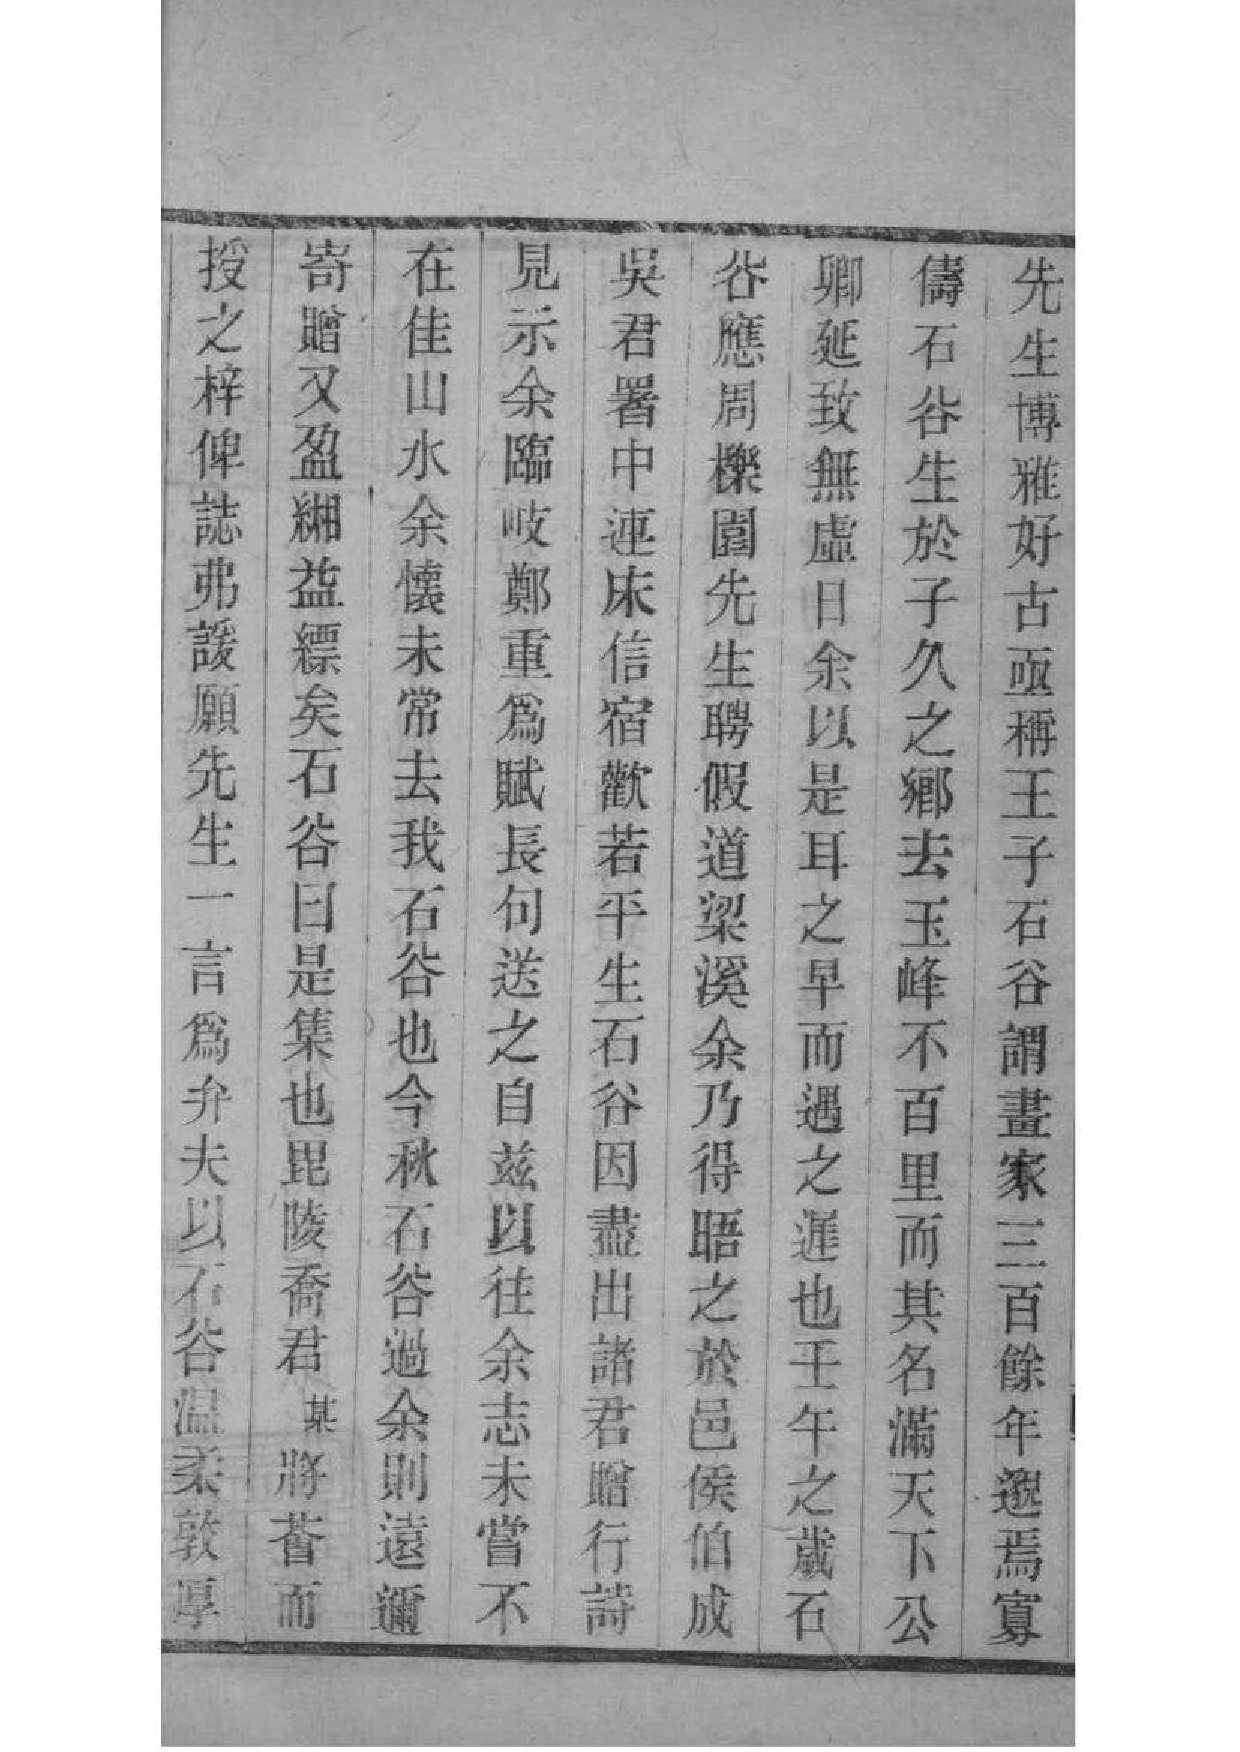 先生博雅好古亟稱王子石谷謂畫家三百餘年邈焉寡
儔石谷生於子久之鄉去玉峰不百里而其名滿天下公
卿延致無虛日余以是耳之早而遇之遲也壬午之歲石
谷應周櫟園先生聘假道梁溪余乃得晤之於邑侯伯成
吳君署中連床信宿歡若平生石谷因盡出諸君贈行詩
見示余臨岐鄭重爲賦長句送之自茲以往余志未嘗不
在佳山水余懷未常去我石谷也今秋石谷過余則遠邇
寄贈又盈緗益縹矣石谷曰是集也毘陵喬君某將薈而
授之梓俾誌弗諼願先生一言爲弁夫以石谷温柔敦厚